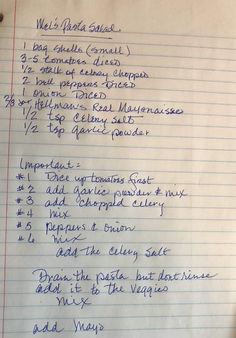 Mel's Pasta Salad
1 bag shells (small)
3-5 tomatoes diced
1/2 stalk of celery chopped
2 bell peppers Diced
1 onion Diced
2/3 Hellman's Real Mayonaisse
1/2 tsp Celery Salt
1/2 tsp garlic powder
Important:
#1 Dice up tomatoes first
#2 add garlic powder & mix
#3 add chopped celery
#4 mix
#5 peppers & onion
#6 mix
add the celery salt
Drain the pasta but dont rinse
add it to the veggies
mix
add Mayo